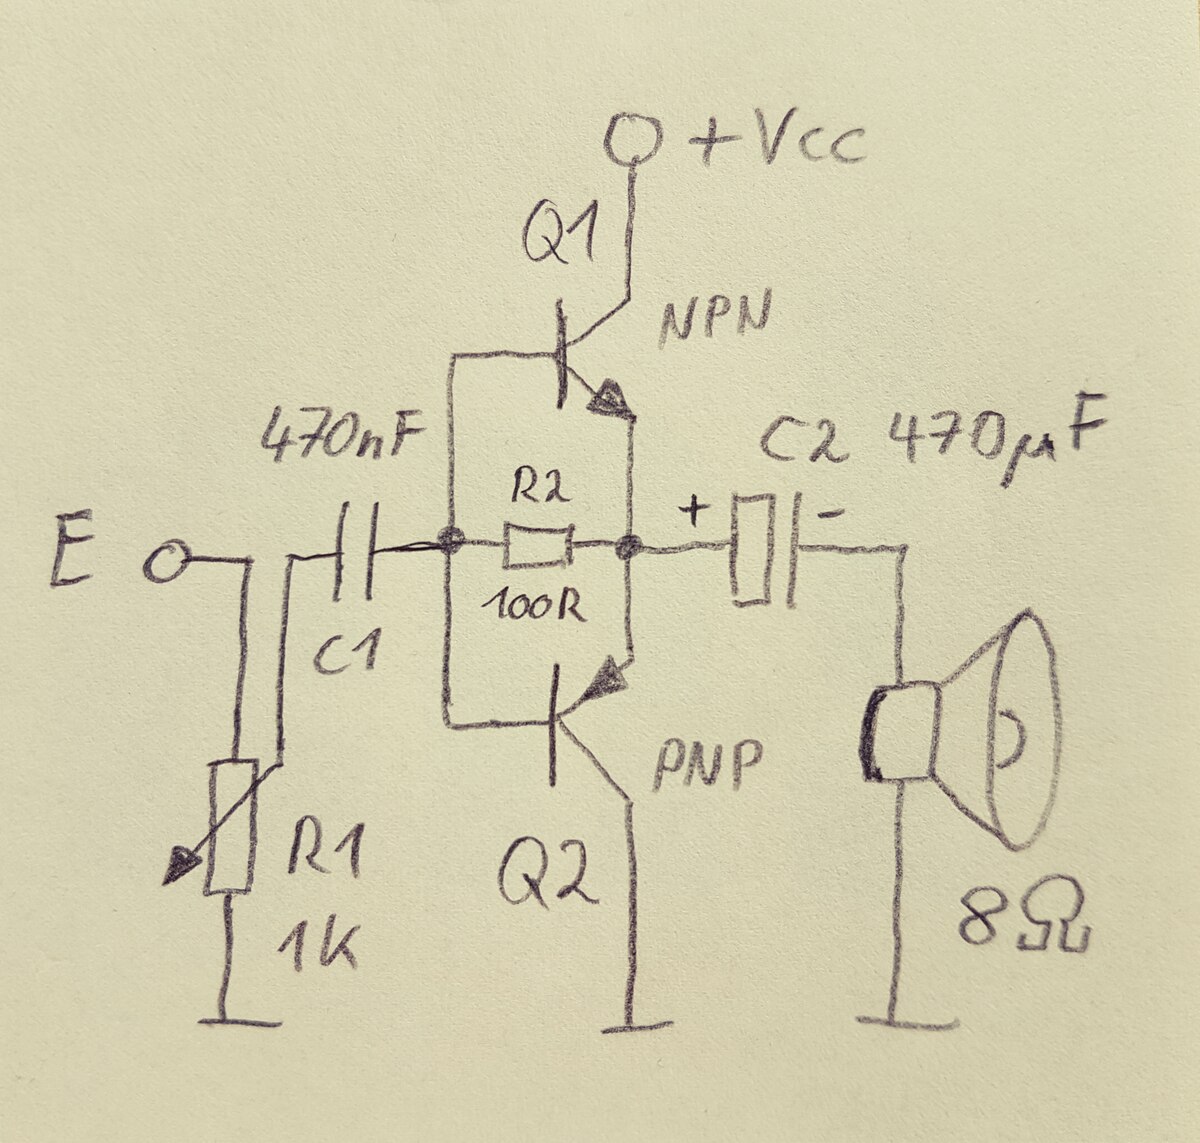 +Vcc
Q1
NPN
470nF
C2 470µF
R2
+ -
E
100R
C1
PNP
R1
Q2
1K
8Ω